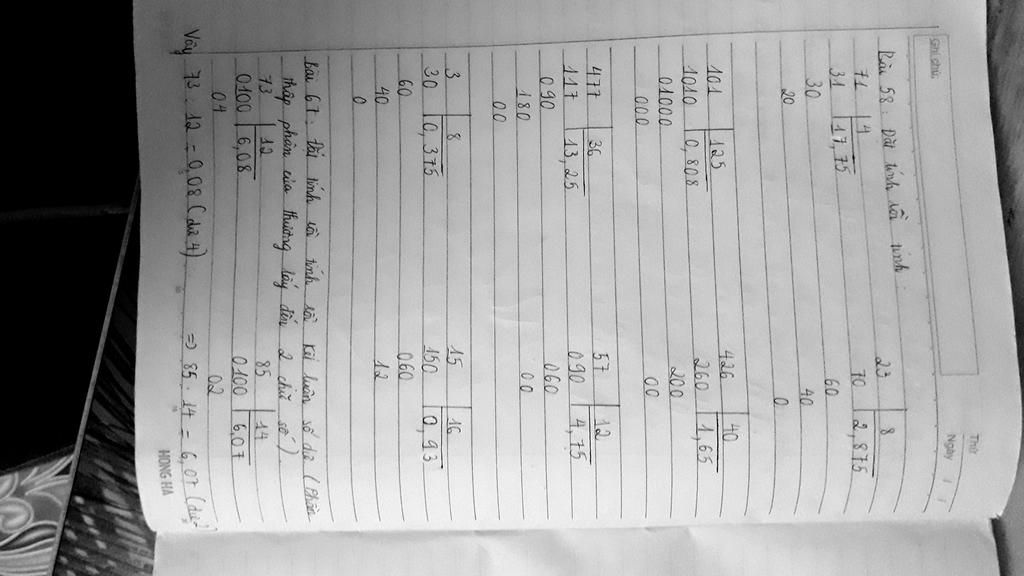 Ghi chú:
Thứ
Ngày / /
Bài 58: Đặt tính rồi tính.
71 4 23 8
31 17,75 70 2,875
30 60
20 40
0
101 125 426 40
1010 0,808 260 1,65
01000 200
000 00
477 36 57 12
117 13,25 090 4,75
090 060
180 00
00
3 8 15 16
30 0,375 150 0,93
60 060
40 12
0
Bài 67: Đặt tính rồi tính rồi kết luận số dư (Phần
thập phân của thương lấy đến 2 chữ số).
73 12 85 14
0100 6,08 0100 6,07
04 02
Vậy 73 : 12 = 0,08 (dư 4) => 85 : 14 = 6,07 (dư
HONG HA